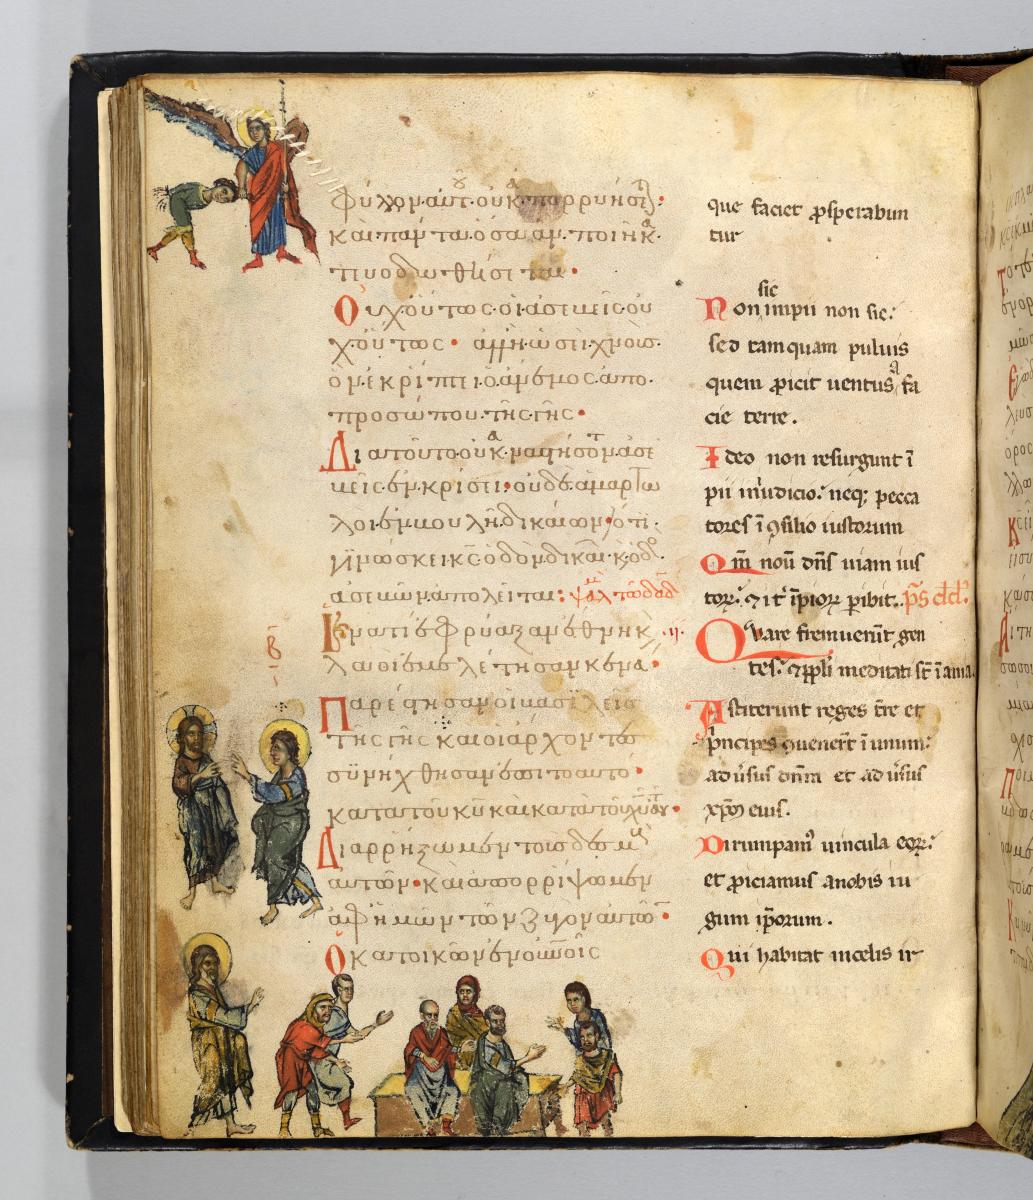 φύλλον αὐτοῦ οὐκ ἀπορρυήσεται·
καὶ πάντα ὅσα ἂν ποιῇ κα
τευοδωθήσεται·
Οὐχ οὕτως οἱ ἀσεβεῖς οὐ
χ οὕτως· ἀλλ ἢ ὡσεὶ χνοῦς
ὃν ἐκρίπτει ὁ ἄνεμος ἀπὸ
προσώπου τῆς γῆς·
Διὰ τοῦτο οὐκ ἀναστήσονται ἀσε
βεῖς ἐν κρίσει· οὐδὲ ἁμαρτω
λοὶ ἐν βουλῇ δικαίων· ὅτι
γινώσκει κς ὁδὸν δικαίων κ ὁδὸς
ἀσεβῶν ἀπολεῖται: ψαλμ τω δαδ
β
Ἵνα τί ἐφρύαξαν ἔθνη κ
λαοὶ ἐμελέτησαν κενά·
Παρέστησαν οἱ βασιλεῖς
τῆς γῆς καὶ οἱ ἄρχοντες
συνήχθησαν ἐπὶ τὸ αὐτό·
κατὰ τοῦ κυ καὶ κατὰ τοῦ χυ αὐτοῦ·
Διαρρήξωμεν τοὺς δεσμοὺς
αὐτῶν· καὶ ἀπορρίψωμεν
ἀφ ἡμῶν τὸν ζυγὸν αὐτῶν·
Ὁ κατοικῶν ἐν οὐνοῖς
que faciet ꝓsperabun
tur
Non sic impii non sic:
sed tamquam puluis
quem ꝓicit uentus a fa
cie terre.
Ideo non resurgunt ī
pii in iudicio: neq; pecca
tores ī ꝯsilio iustorum
Qm̄ nouit dn̄s uiam ius
toꝝ: ⁊ it' īpioꝝ ꝑibit. p̄s dd.
.ii. Quare fremuerūt gen
tes: ⁊ ppl̄i meditati st̄ īania
Astiterunt reges t̄re et
prīncipes ꝯuenert̄ ī unum:
aduersus dn̄m et aduersus
xp̄m eius.
Dirumpamꝰ uincula eoꝝ:
et ꝓiciamus anobis iu
gum ip̄orum.
Qui habitat incelis ir